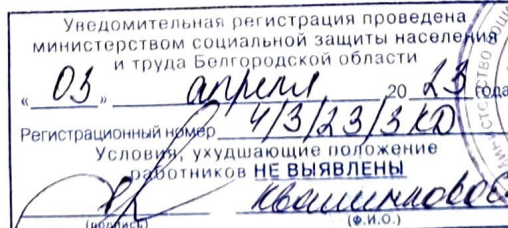 Уведомительная регистрация проведена
министерством социальной защиты населения
и труда Белгородской области
«03» апреля 2023 года
Регистрационный номер 4/3/23/3 КД
Условия, ухудшающие положение
работников НЕ ВЫЯВЛЕНЫ
(подпись) (Ф.И.О.)